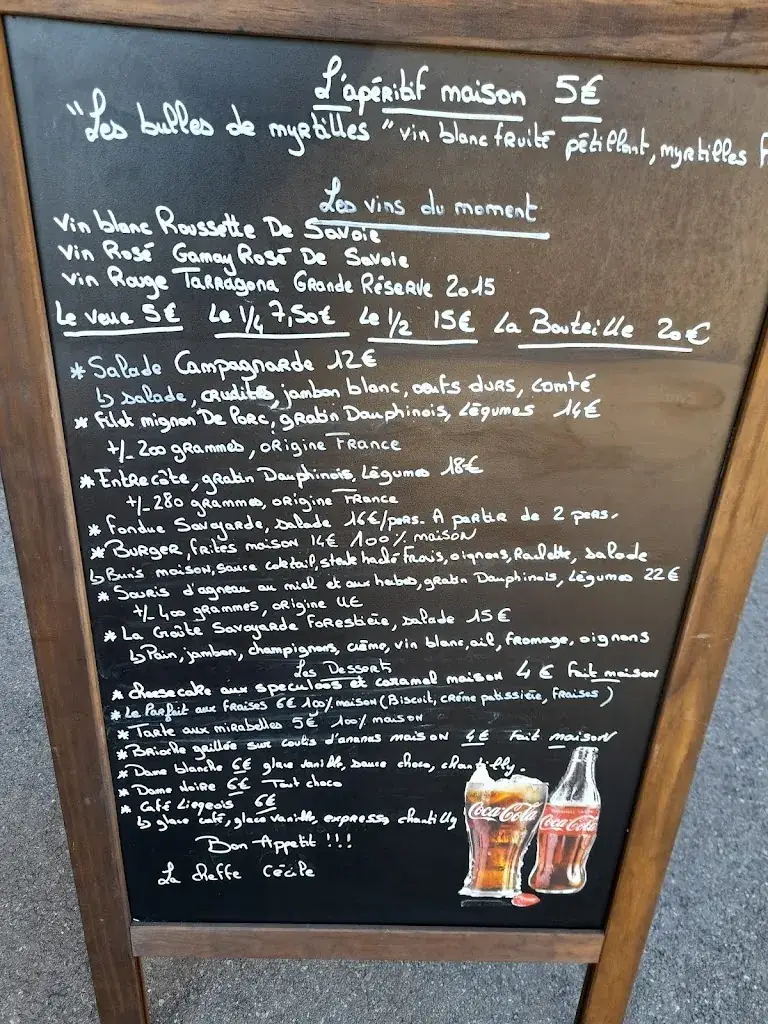 L'apéritif maison 5€
"Les bulles de myrtilles" vin blanc fruité pétillant, myrtilles
Les vins du moment
Vin blanc Roussette De Savoie
Vin Rosé Gamay Rosé De Savoie
Vin Rouge Tarragona Grande Réserve 2015
Le verre 5€ Le 1/4 7,50€ Le 1/2 15€ La Bouteille 20€
* Salade Campagnarde 12€
↳ salade, crudités, jambon blanc, oeufs durs, comté
* Filet mignon De Porc, gratin Dauphinois, légumes 14€
+/- 200 grammes, origine France
* Entrecôte, gratin Dauphinois, légumes 18€
+/- 280 grammes, origine France
* Fondue Savoyarde, salade 16€/pers. A partir de 2 pers.
* Burger, frites maison 14€ 100% maison
↳ Buns maison, sauce cocktail, steak haché frais, oignons, Raclette, salade
* Souris d'agneau au miel et aux herbes, gratin Dauphinois, légumes 22€
+/- 400 grammes, origine UE
* La Croûte Savoyarde Forestière, salade 15€
↳ Pain, jambon, champignons, crème, vin blanc, ail, fromage, oignons
Les Desserts
* cheesecake aux speculoos et caramel maison 4€ Fait maison
* Le Parfait aux fraises 6€ 100% maison (Biscuit, crème patissière, fraises)
* Tarte aux mirabelles 5€ 100% maison
* Brioche grillée sur coulis d'ananas maison 4€ Fait maison
* Dame blanche 6€ glace vanille, sauce choco, chantilly.
* Dame noire 6€ Tout choco
* Café Liegeois 6€
↳ glace café, glace vanille, expresso, chantilly
Bon Appetit !!!
La cheffe Cécile
Coca-Cola
Coca-Cola